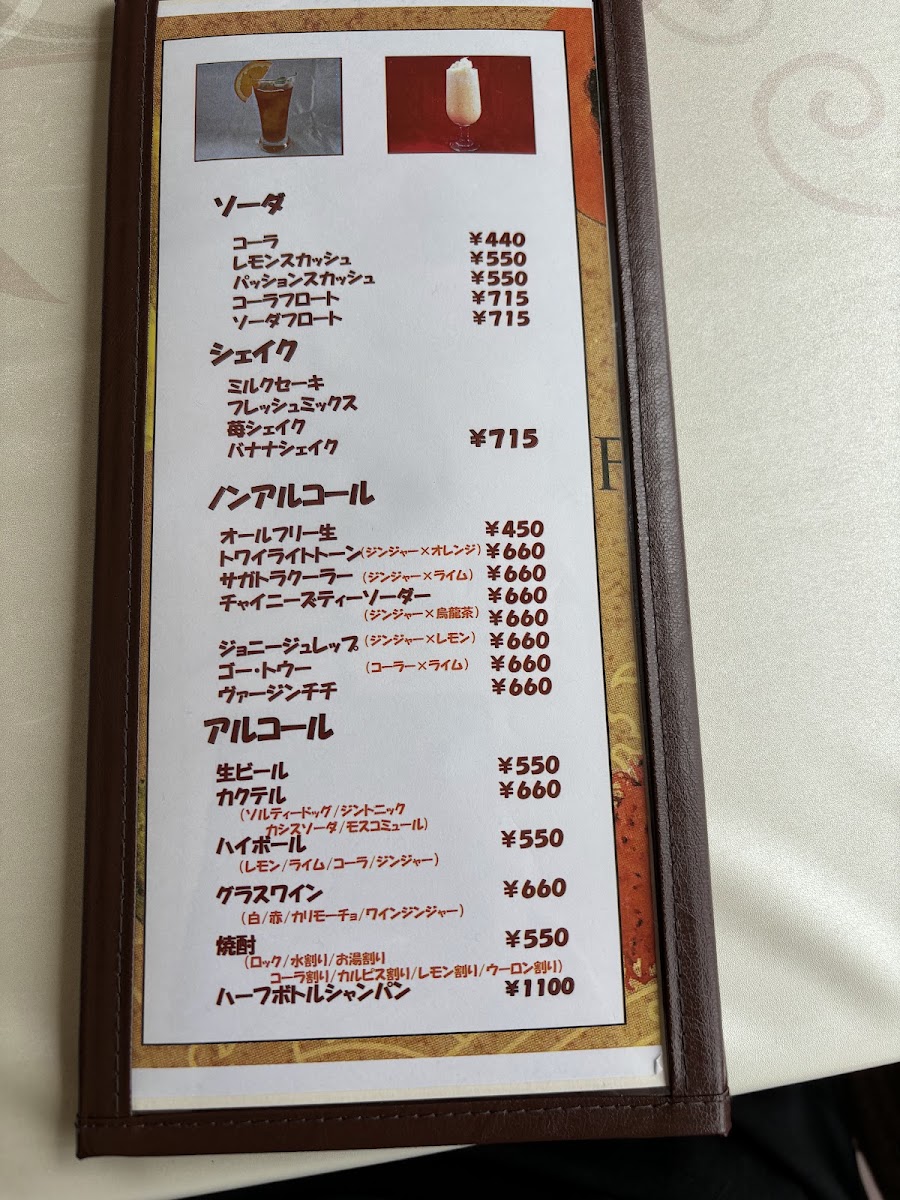 ソーダ
コーラ ¥440
レモンスカッシュ ¥550
パッションスカッシュ ¥550
コーラフロート ¥715
ソーダフロート ¥715
シェイク
ミルクセーキ
フレッシュミックス
苺シェイク
バナナシェイク ¥715
ノンアルコール
オールフリー生 ¥450
トワイライトトーン(ジンジャー×オレンジ) ¥660
サガトラクーラー (ジンジャー×ライム) ¥660
チャイニーズティーソーダー ¥660
(ジンジャー×烏龍茶) ¥660
ジョニージュレップ (ジンジャー×レモン) ¥660
ゴー・トウー (コーラー×ライム) ¥660
ヴァージンチチ ¥660
アルコール
生ビール ¥550
カクテル ¥660
(ソルティードッグ/ジントニック
カシスソーダ/モスコミュール)
ハイボール ¥550
(レモン/ライム/コーラ/ジンジャー)
グラスワイン ¥660
(白/赤/カリモーチョ/ワインジンジャー)
焼酎 ¥550
(ロック/水割り/お湯割り
コーラ割り/カルピス割り/レモン割り/ウーロン割り)
ハーフボトルシャンパン ¥1100